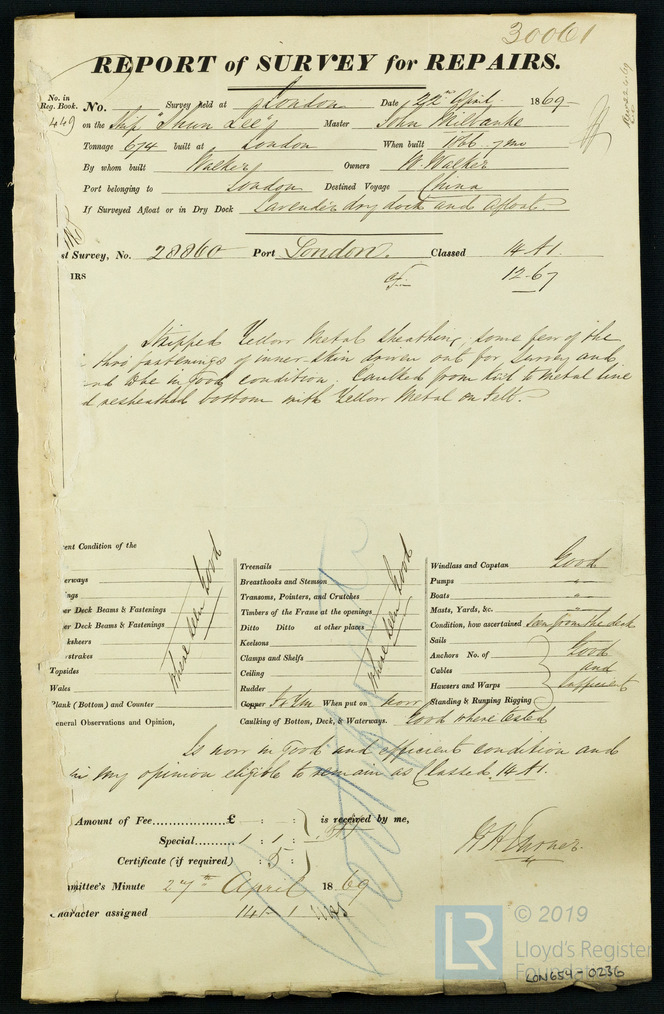 30061
REPORT of SURVEY for REPAIRS.
No. in Reg. Book. No. Survey held at London Date 22nd April 1869
449 on the Ship "Shun Lee" Master John Milbanke
Tonnage 674 built at London When built 1866 . 7 mo
By whom built Walker Owners W Walker
Port belonging to London Destined Voyage China
If Surveyed Afloat or in Dry Dock Lavender dry dock and Afloat
st Survey, No. 28860 Port London. Classed 14 A1.
IRS 12-67
Stripped Yellow Metal sheathing, some few of the
thro fastenings of inner skin driven out for survey and
in good condition. Caulked from Keel to metal line
d resheathed bottom with Yellow Metal on Felt.
ent Condition of the
erways
ngs
er Deck Beams & Fastenings
er Deck Beams & Fastenings
ksheers
rstrakes
Topsides
Wales
Plank (Bottom) and Counter
eneral Observations and Opinion,
Where seen Good
Treenails
Breasthooks and Stemson
Transoms, Pointers, and Crutches
Timbers of the Frame at the openings
Ditto Ditto at other places
Keelsons
Clamps and Shelfs
Ceiling
Rudder
Copper F & YM When put on now
Caulking of Bottom, Deck, & Waterways. Good where tested
Where seen Good
Windlass and Capstan Good
Pumps "
Boats "
Masts, Yards, &c. "
Condition, how ascertained Seen from the deck
Sails
Anchors No. of
Cables
Hawsers and Warps
Standing & Running Rigging
Good
and
Sufficient
Is now in good and efficient condition and
in my opinion eligible to remain as Classed. 14 A1.
Amount of Fee £ : : is received by me,
Special 1 : 1 :
Certificate (if required) : 5 :
mittee's Minute 27th April 1869
Character assigned 14 A 1
LR © 2019
Lloyd's Register
Foundation
LON654-0236